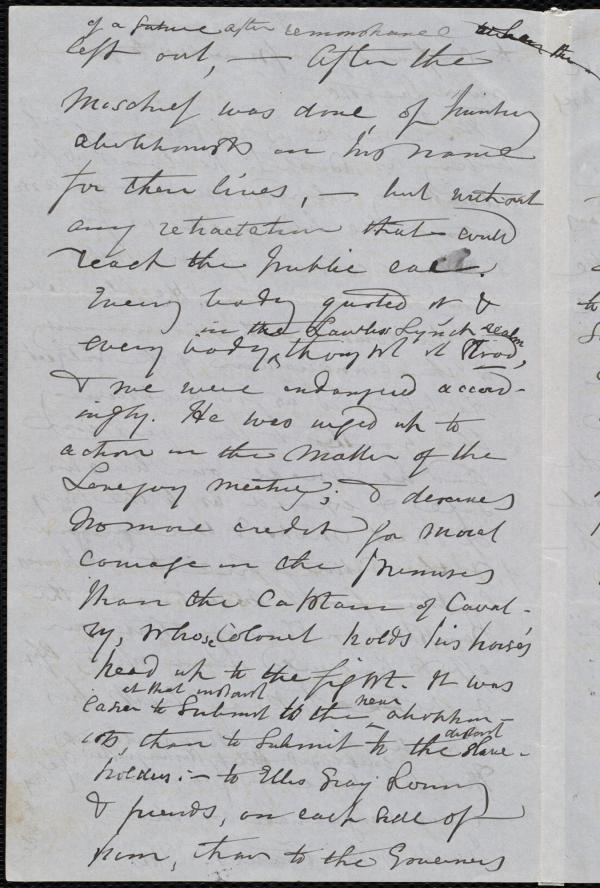 of a future after remonstrance
left out, — After the
Mischief was done, of hunting
abolitionists in his name
for their lives, — but without
any retractation that could
reach the public ear.
Every body quoted it &
in the Lawless Lynch realm
every body thought it stood,
& we were endangered accord-
ingly. He was urged up to
action in the matter of the
Lovejoy meeting; & deserves
No more credit for moral
courage in the premises
than the Captain of Caval-
ry, whose Colonel holds his horse's
head up to the fight. It was
at that instant near
easier to submit to the abolition-
distant
ists, than to submit to the slave-
holders: — to Ellis Gray Loring
& friends, on each side of
him, than to the Governors